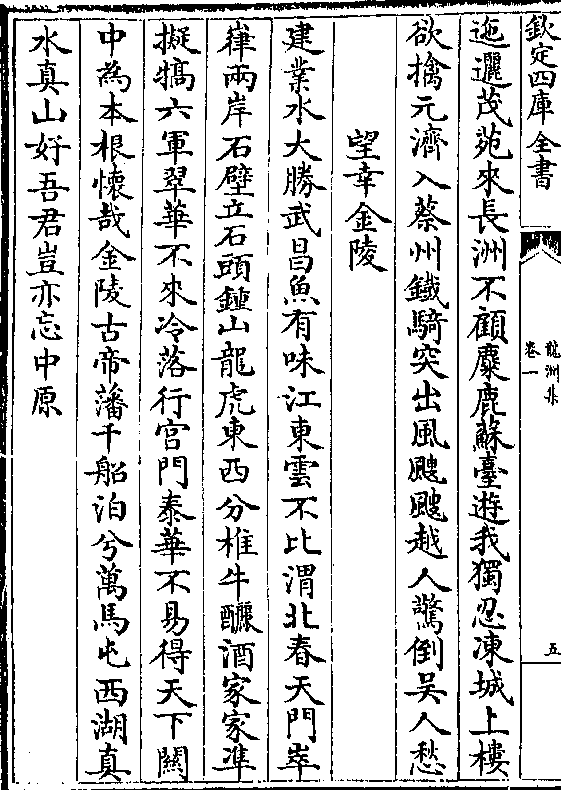 欽定四庫全書
龍洲集
卷一
五
迤邐茂苑來長洲不顧麋鹿蘇臺遊我獨忍凍城上樓
欲擒元濟入蔡州鐵騎突出風颼颼越人驚倒吳人愁
望幸金陵
建業水大勝武昌魚有味江東雲不比渭北春天門崒
嵂兩岸石壁立石頭鍾山龍虎東西分椎牛釃酒家家準
擬犒六軍翠華不來冷落行宮門泰華不易得天下關
中為本根懷哉金陵古帝藩千船泊兮萬馬屯西湖真
水真山好吾君豈亦忘中原